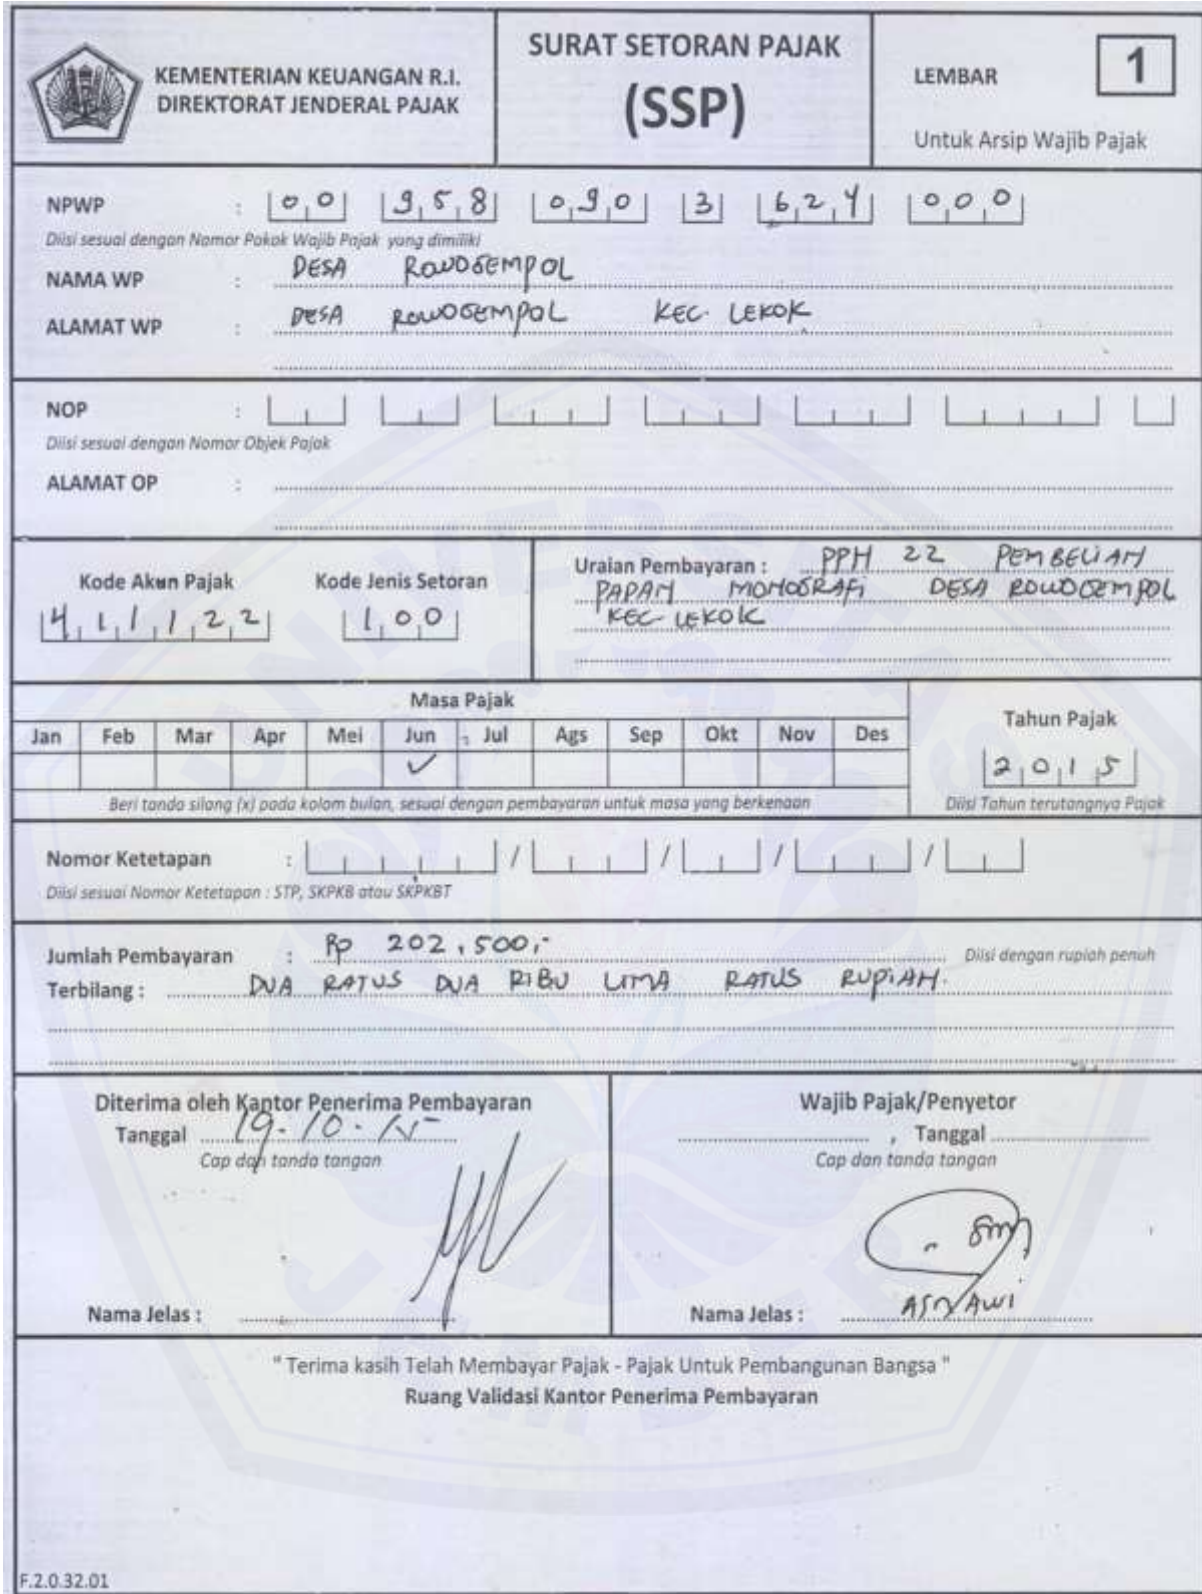 KEMENTERIAN KEUANGAN R.I.
DIREKTORAT JENDERAL PAJAK
SURAT SETORAN PAJAK
(SSP)
LEMBAR 1
Untuk Arsip Wajib Pajak
NPWP : 00 958 090 3 624 000
Diisi sesuai dengan Nomor Pokok Wajib Pajak yang dimiliki
NAMA WP : DESA ROWOGEMPOL
ALAMAT WP : DESA ROWOGEMPOL KEC. LEKOK
NOP :
Diisi sesuai dengan Nomor Objek Pajak
ALAMAT OP :
Kode Akun Pajak Kode Jenis Setoran
411122 100
Uraian Pembayaran : PPH 22 PEMBELIAN
PAPAN MONOGRAFI DESA ROWOGEMPOL
KEC LEKOK
Masa Pajak
Jan Feb Mar Apr Mei Jun Jul Ags Sep Okt Nov Des
✓
Beri tanda silang (x) pada kolom bulan, sesuai dengan pembayaran untuk masa yang berkenaan
Tahun Pajak
2015
Diisi Tahun terutangnya Pajak
Nomor Ketetapan : / / / /
Diisi sesuai Nomor Ketetapan : STP, SKPKB atau SKPKBT
Jumlah Pembayaran : Rp 202.500,- Diisi dengan rupiah penuh
Terbilang : DUA RATUS DUA RIBU LIMA RATUS RUPIAH.
Diterima oleh Kantor Penerima Pembayaran
Tanggal 19-10-15
Cap dan tanda tangan
Nama Jelas :
Wajib Pajak/Penyetor
, Tanggal
Cap dan tanda tangan
Nama Jelas : ASNAWI
" Terima kasih Telah Membayar Pajak - Pajak Untuk Pembangunan Bangsa "
Ruang Validasi Kantor Penerima Pembayaran
F.2.0.32.01